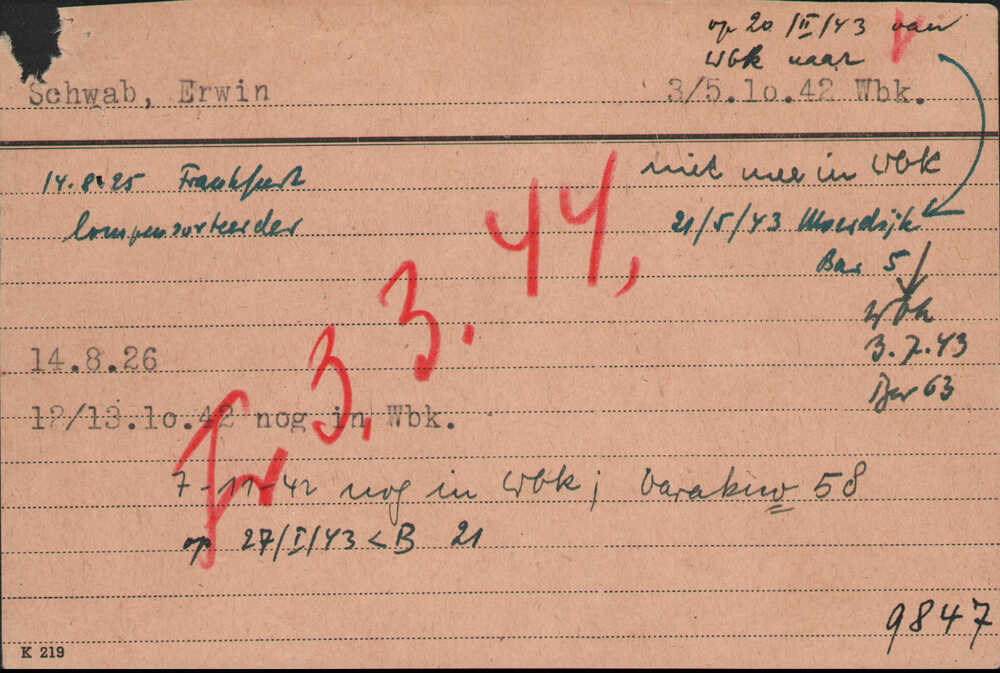 op 20/II/43 van
Wbk naar
Schwab, Erwin 3/5.10.42 Wbk.
niet meer in Wbk
14.8.25 Frankfurt
lompensorteerder 21/5/43 Moerdijk
Bar 5
Wbk
14.8.26 3.7.43
Bar 63
12/13.10.42 nog in Wbk.
Tr 3.3.44,
7-11-42 nog in Wbk; barak 58
op 27/I/43 < B 21
9847
K 219